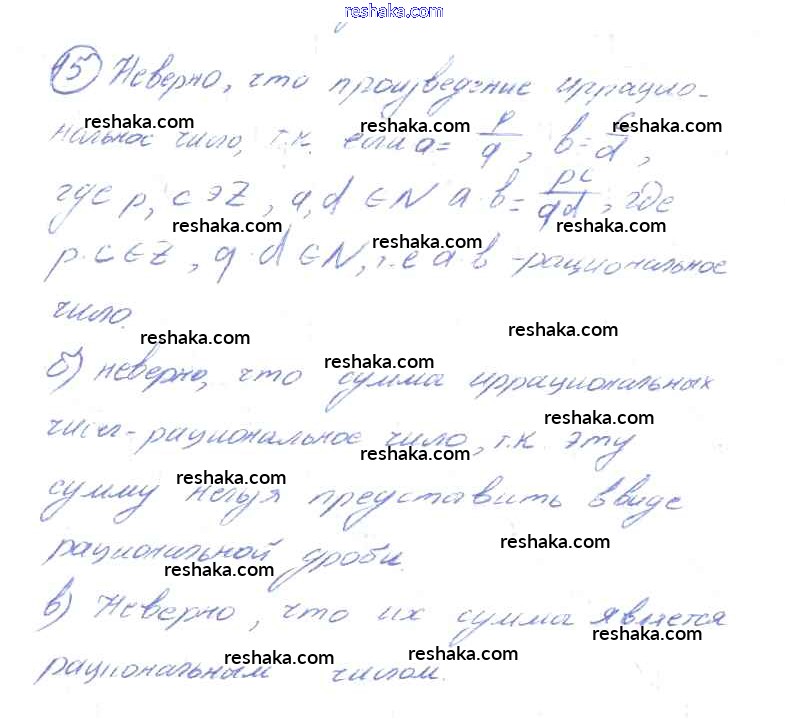 reshaka.com
15 Неверно, что произведение иррацио-
reshaka.com reshaka.com
нальное число, т.к. если a = p/q, b = c/d,
где p, c э Z, q, d ∈ N a·b = pc/qd, где
reshaka.com reshaka.com
p·c ∈ Z, q·d ∈ N, т.е a·b - рациональное
число.
reshaka.com reshaka.com
reshaka.com
б) неверно, что сумма иррациональных
reshaka.com
чисел - рациональное число, т.к. эту
reshaka.com
reshaka.com
сумму нельзя представить в виде
рациональной дроби.
reshaka.com
reshaka.com
в) Неверно, что их сумма является
reshaka.com
reshaka.com reshaka.com
рациональным числом.